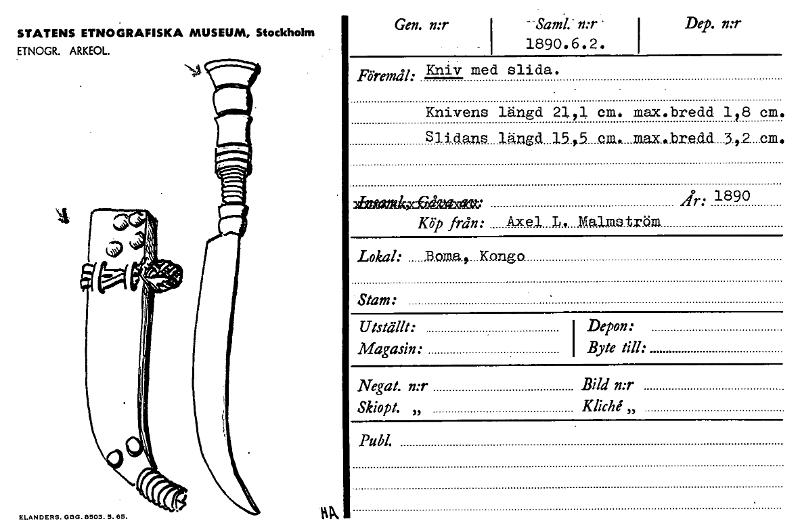 STATENS ETNOGRAFISKA MUSEUM, Stockholm
ETNOGR. ARKEOL.
Gen. n:r
Saml. n:r
1890.6.2.
Dep. n:r
Föremål: Kniv med slida.
Knivens längd 21,1 cm. max.bredd 1,8 cm.
Slidans längd 15,5 cm. max.bredd 3,2 cm.
Insaml., Gåva av:
År: 1890
Köp från: Axel L. Malmström
Lokal: Boma, Kongo
Stam:
Utställt:
Depon:
Magasin:
Byte till:
Negat. n:r
Bild n:r
Skiopt. „
Kliché „
Publ.
ELANDERS. GBG. 8503. 5. 65.
HA